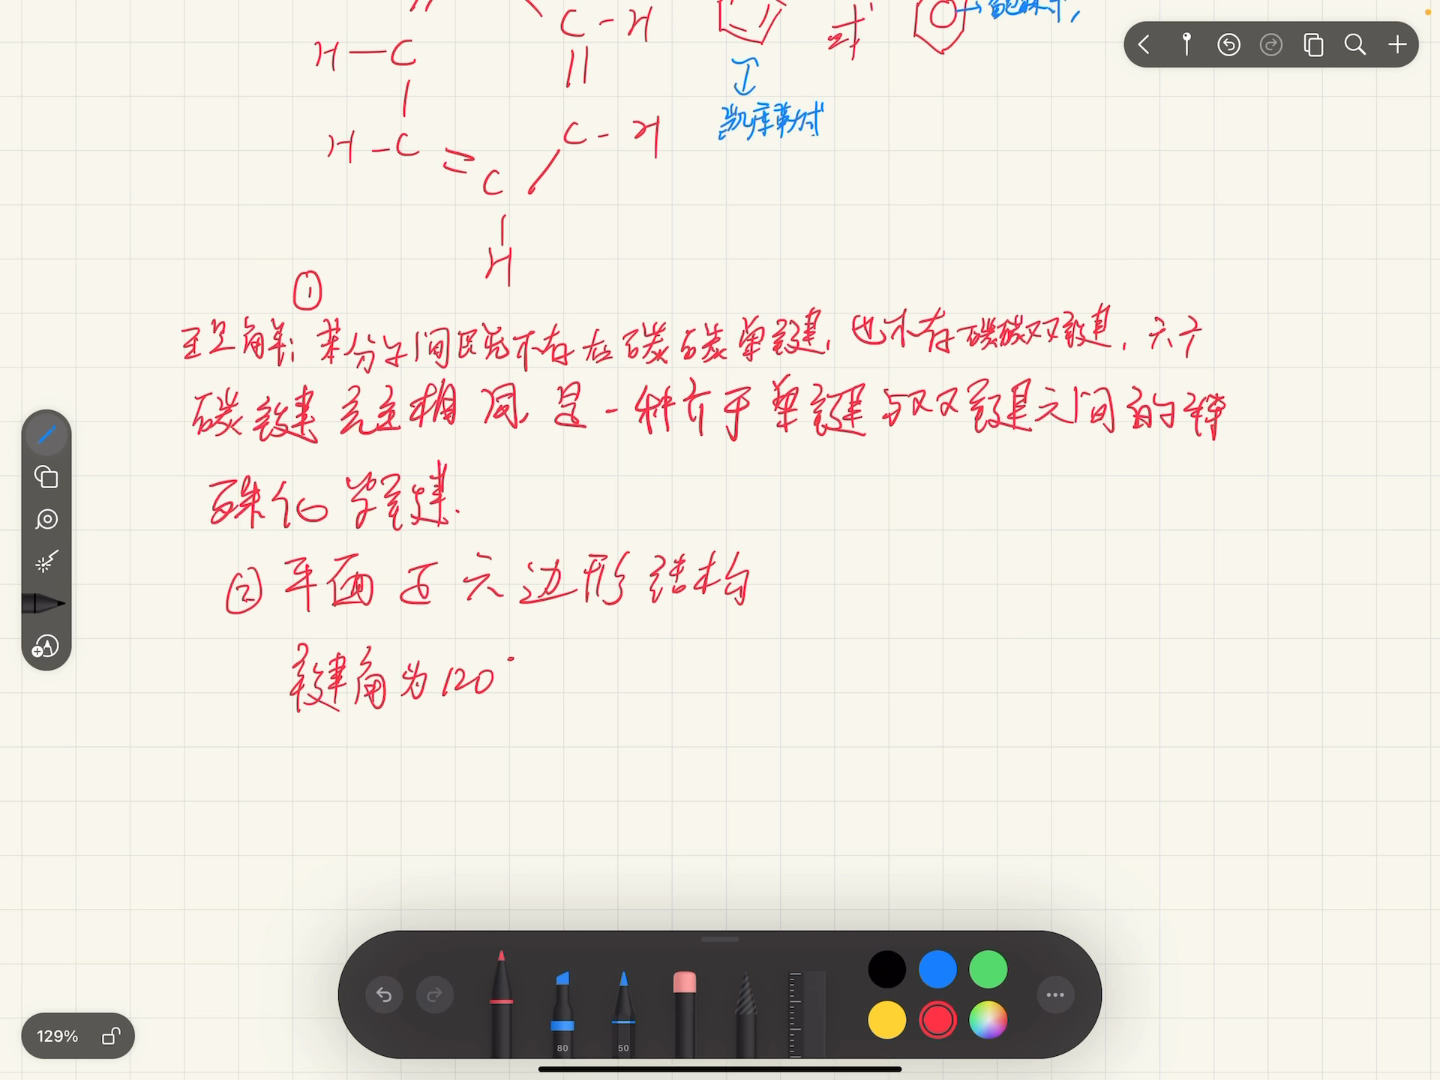 C-H
或
H-C
凯库勒式
H-C
C-H
C
H
①
理解:苯分子间既不存在碳碳单键,也不存碳碳双键,六个
碳键完全相同,是一种介于单键与双键之间的特
殊化学键.
②平面正六边形结构
键角为120°
80
50
129%